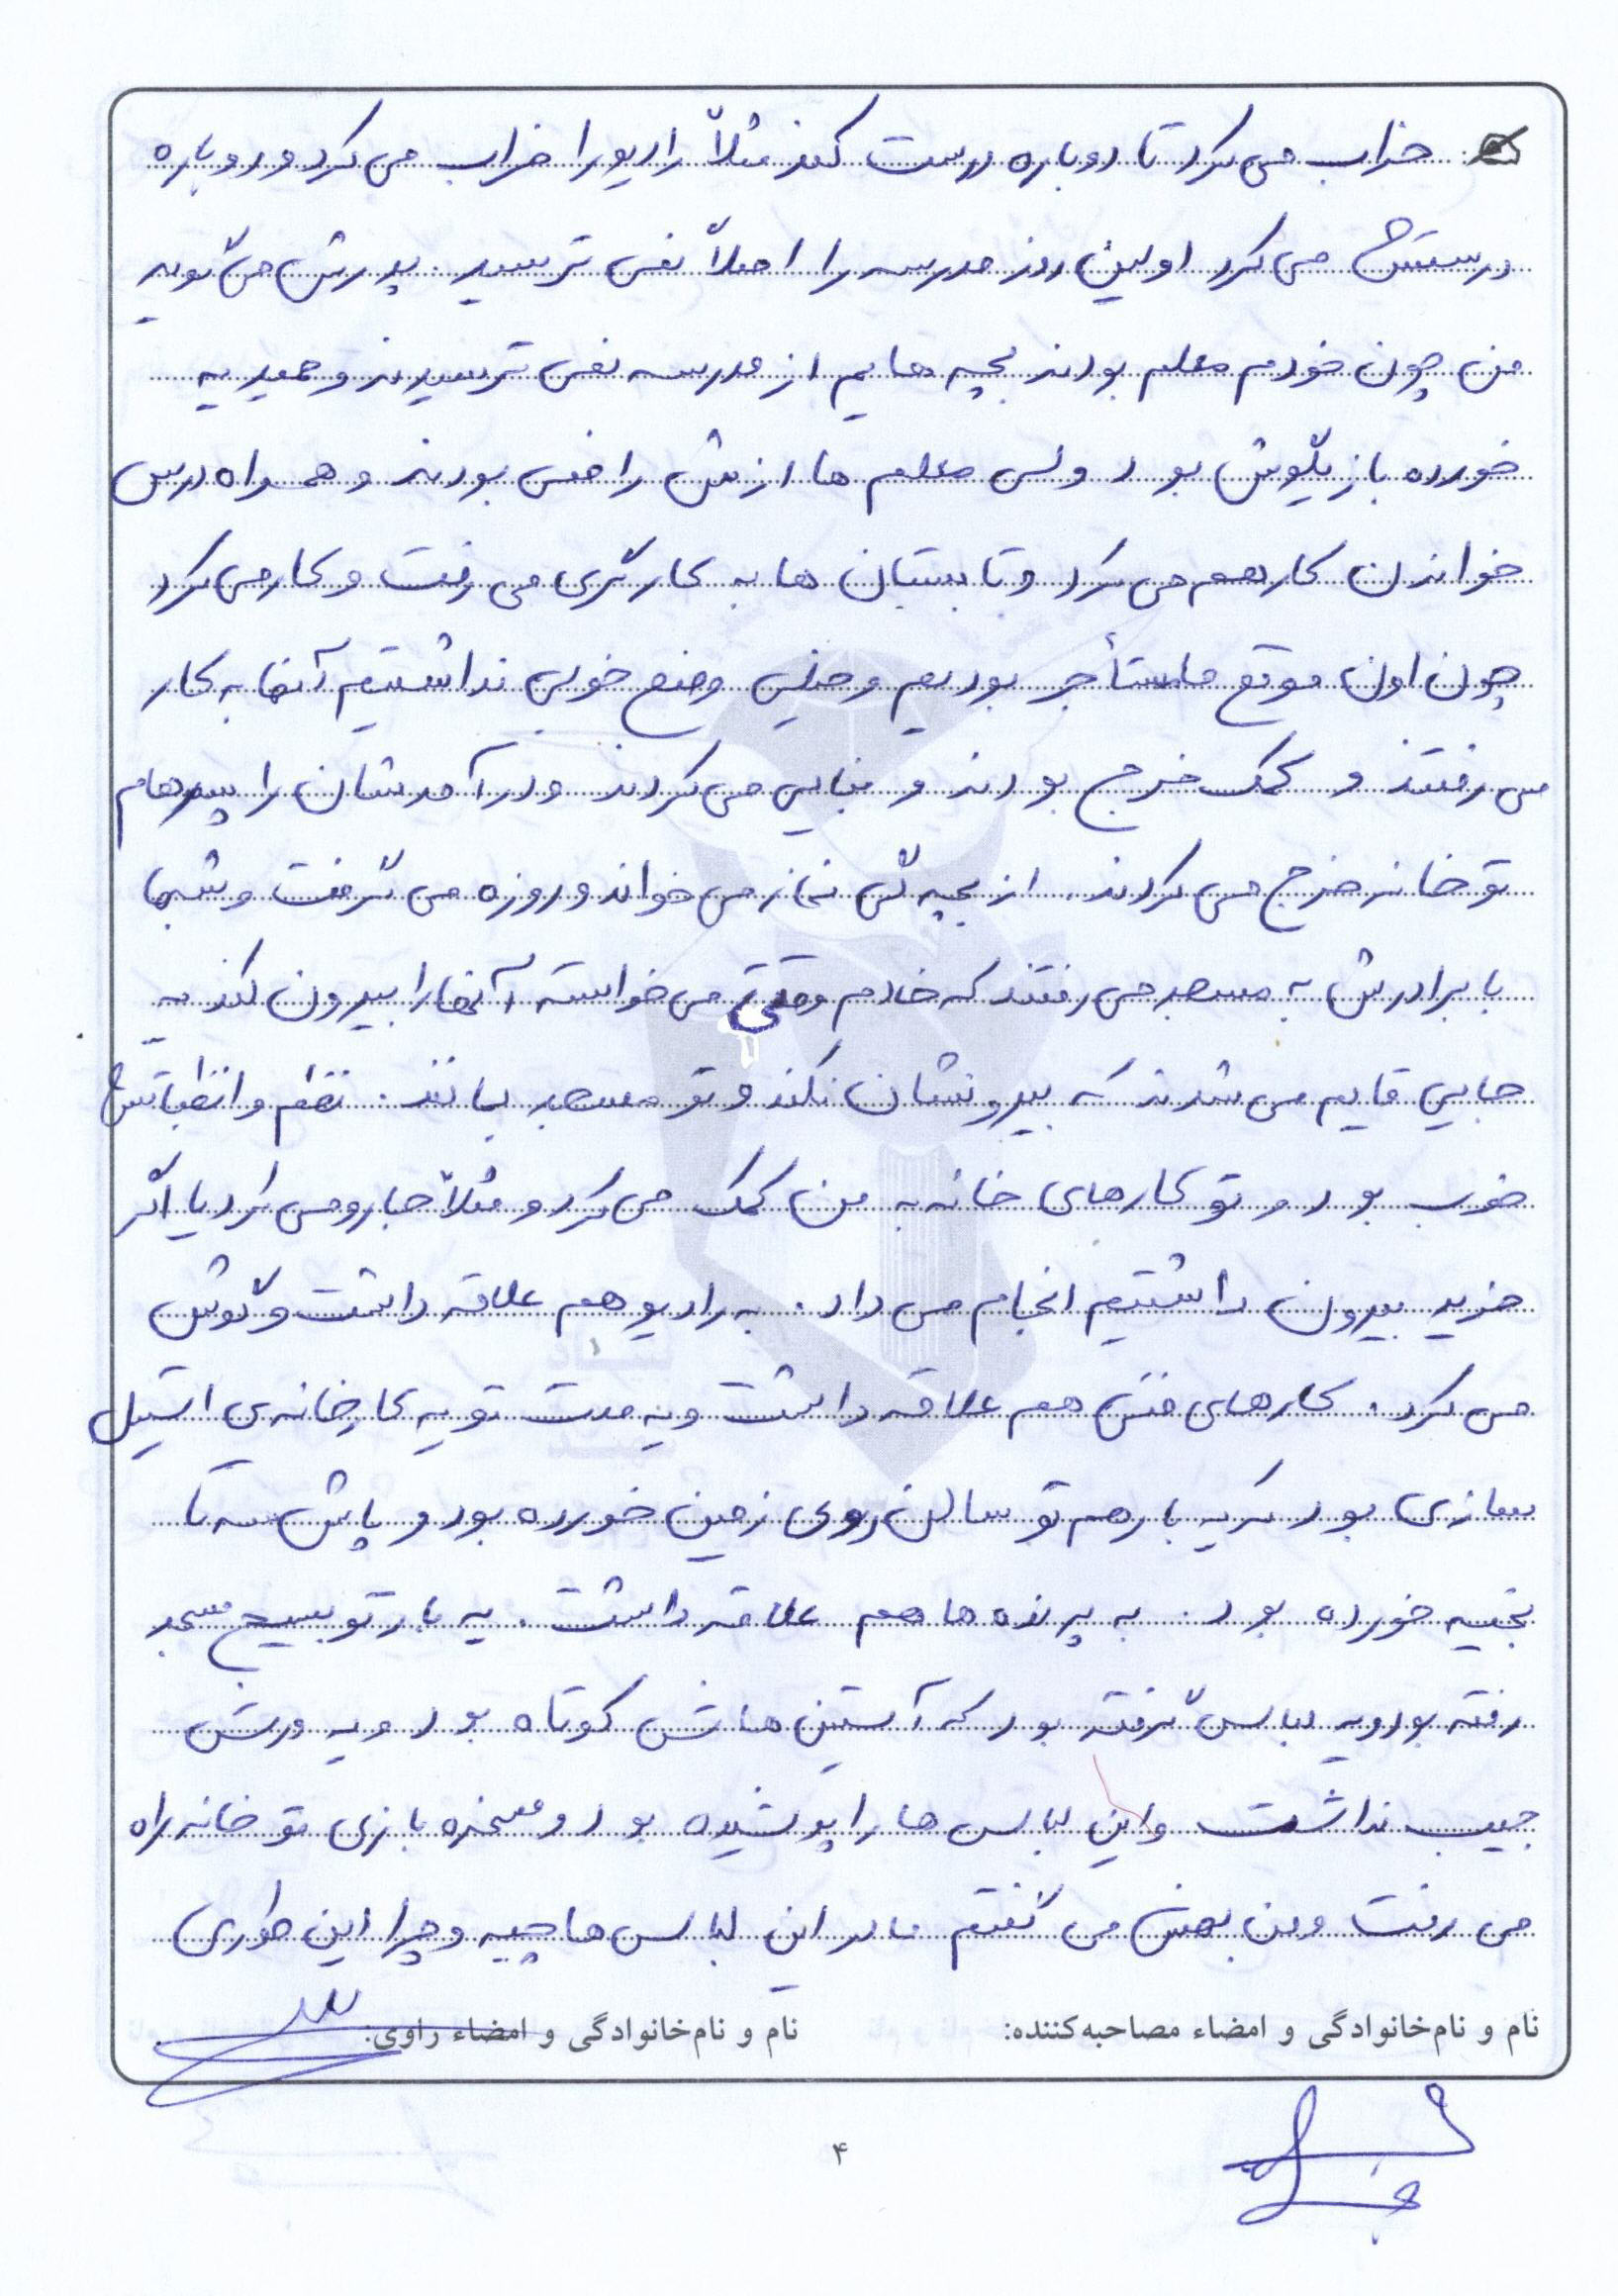 خراب می کرد تا دوباره درست کند مثلاً رادیو را خراب می کرد و دوباره
درستش می کرد اولین روز مدرسه را اصلاً نمی ترسید. پدرش می گوید
من چون خودم معلم بودند بچه هایم از مدرسه نمی ترسیدند و حمید یه
خورده بازیگوش بود ولی معلم ها ازش راضی بودند و همراه درس
خواندن کار هم می کرد و تابستان ها به کارگری می رفت و کار می کرد
چون اون موقع ما مستأجر بودیم و خیلی وضع خوبی نداشتیم آنها به کار
می رفتند و کمک خرج بودند و بنایی می کردند و درآمدشان را پسرهام
تو خانه خرج می کردند. از بچه گی نماز می خواند و روزه می گرفت و شبها
با برادرش به مسجد می رفتند که خادم وقتی می خواسته آنها را بیرون کند یه
جایی قایم می شدند که بیرونشان نکند و تو مسجد بمانند. نظم و انظباتش
خوب بود و تو کارهای خانه به من کمک می کرد و مثلاً جارو می کرد یا اگر
خرید بیرون داشتیم انجام می داد. به رادیو هم علاقه داشت و گوش
می کرد. کارهای فنی هم علاقه داشت و یه مدت تو یه کارخانه ی استیل
سازی بود که یه بار هم تو سالن روی زمین خورده بود و پاش سه تا
بخیه خورده بود. به پرنده ها هم علاقه داشت. یه بار تو بسیج مسجد
رفته بود و یه لباس گرفته بود که آستین هاش کوتاه بود و یه ورش
جیب نداشت و این لباس ها را پوشیده بود و مسخره بازی تو خانه راه
می رفت و من بهش می گفتم مادر این لباس ها چیه و چرا این طوری
نام و نام خانوادگی و امضاء مصاحبه کننده: نام و نام خانوادگی و امضاء راوی:
۴